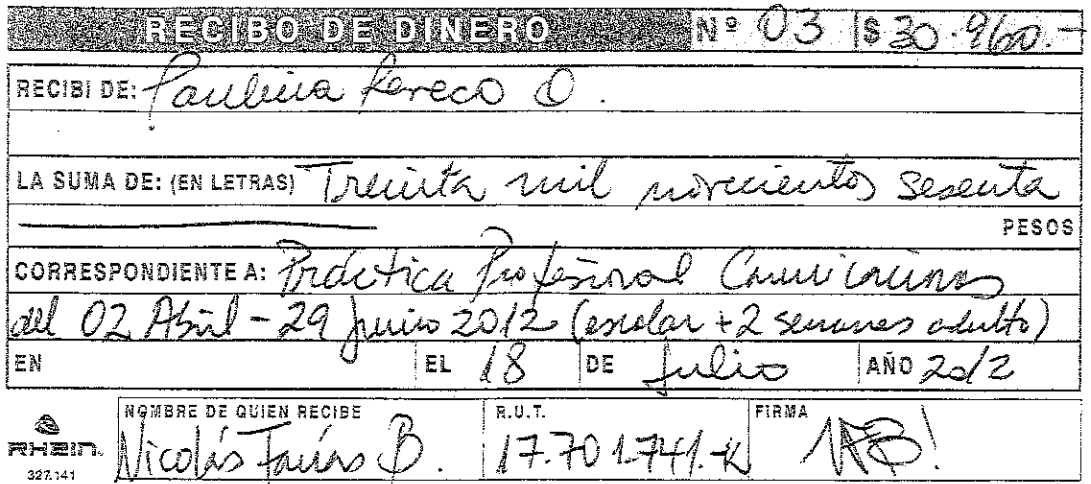 RECIBO DE DINERO Nº 03 $ 30.960.-
RECIBI DE: Paulina Kereco O.
LA SUMA DE: (EN LETRAS) Treinta mil novecientos sesenta
PESOS
CORRESPONDIENTE A: Práctica Profesional Comunicaciones
del 02 Abril - 29 Junio 2012 (escolar + 2 semanas adulto)
EN EL 18 DE Julio AÑO 2012
NOMBRE DE QUIEN RECIBE R.U.T. FIRMA
RHEIN. Nicolás Farías B. 17.701.741-K
327.141